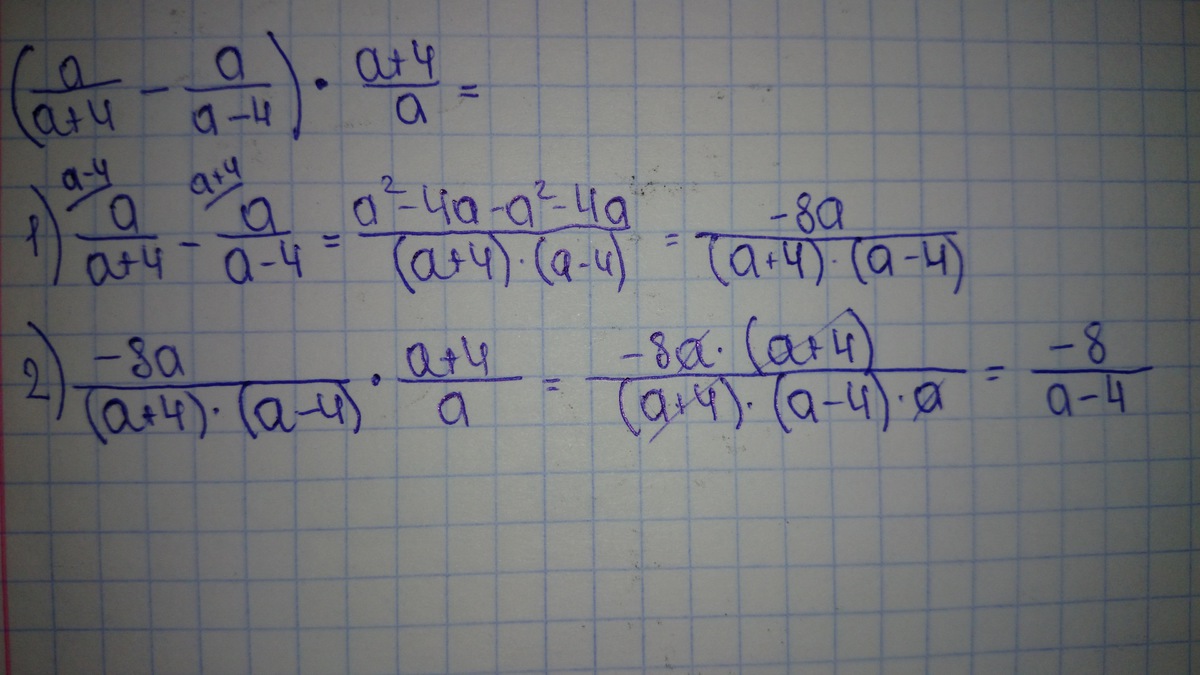 (a/(a+4) - a/(a-4)) · (a+4)/a =
1) a-4/ a/(a+4) - a+4/ a/(a-4) = (a²-4a-a²-4a)/((a+4)·(a-4)) = -8a/((a+4)·(a-4))
2) -8a/((a+4)·(a-4)) · (a+4)/a = (-8a·(a+4))/((a+4)·(a-4)·a) = -8/(a-4)